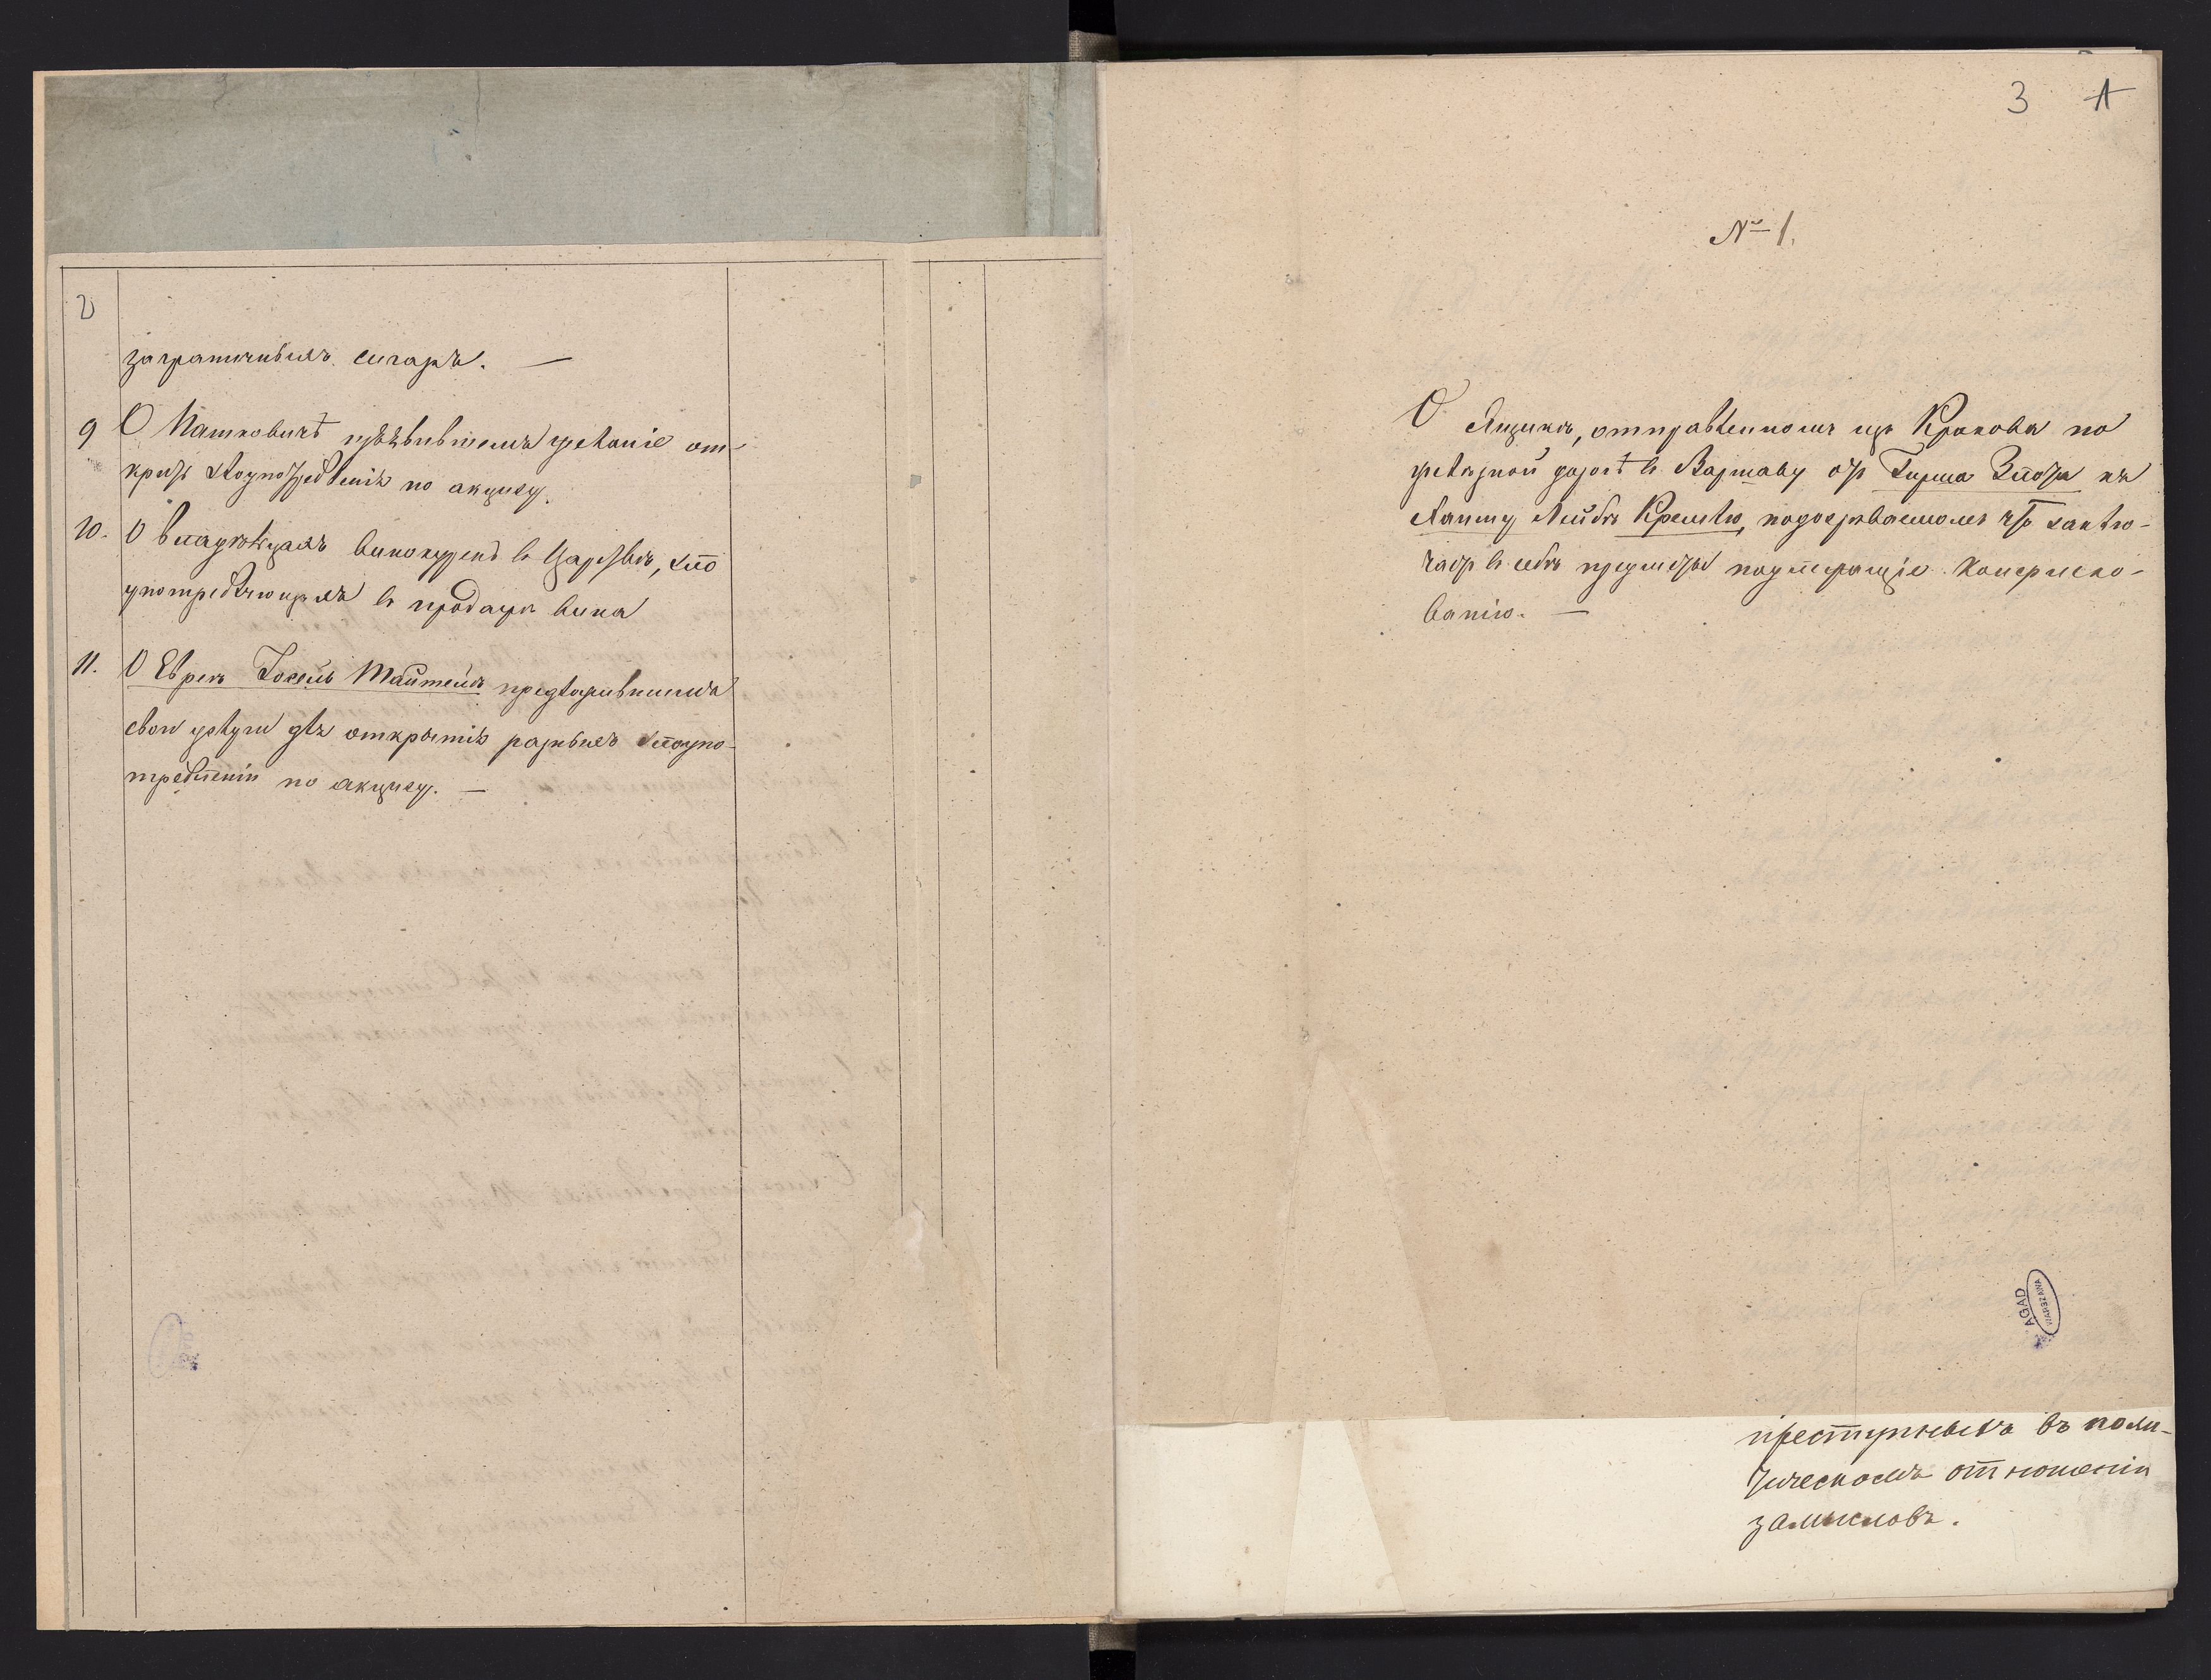 2
заграничныхъ сигаръ. —
9 О Машковичѣ изъявившемъ желаніе от-
крыть злоупотребленія по акцизу.
10. О владѣльцахъ винокуренъ въ Царствѣ, зло
употребляющихъ въ продажѣ вина
11. О Евреѣ Іосель Майтейль предложившимъ
свои услуги для открытія разныхъ злоупо-
требленій по акцизу. —
3 1
№ 1.
О Ящикѣ, отправленномъ изъ Кракова по
желѣзной дорогѣ въ Варшаву отъ Гирша к
Лейбѣ Кремлю, подозрѣваемомъ что заклю-
чаетъ въ себѣ предметы подлежащіе конфиско-
ванію. —
AGAD
WARSZAWA
преступныхъ въ поли-
тическомъ отношеніи
замысловъ.